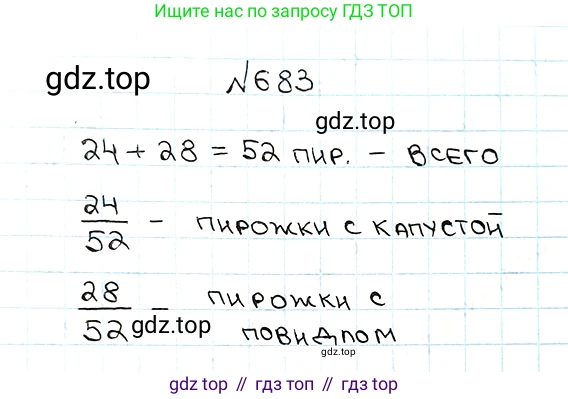 Ищите нас по запросу ГДЗ ТОП
gdz.top
№683
gdz.top
24 + 28 = 52 пир. – всего
24/52 – пирожки с капустой
28/52 – пирожки с
повидлом
gdz.top
gdz.top
gdz top // гдз топ // гдз top